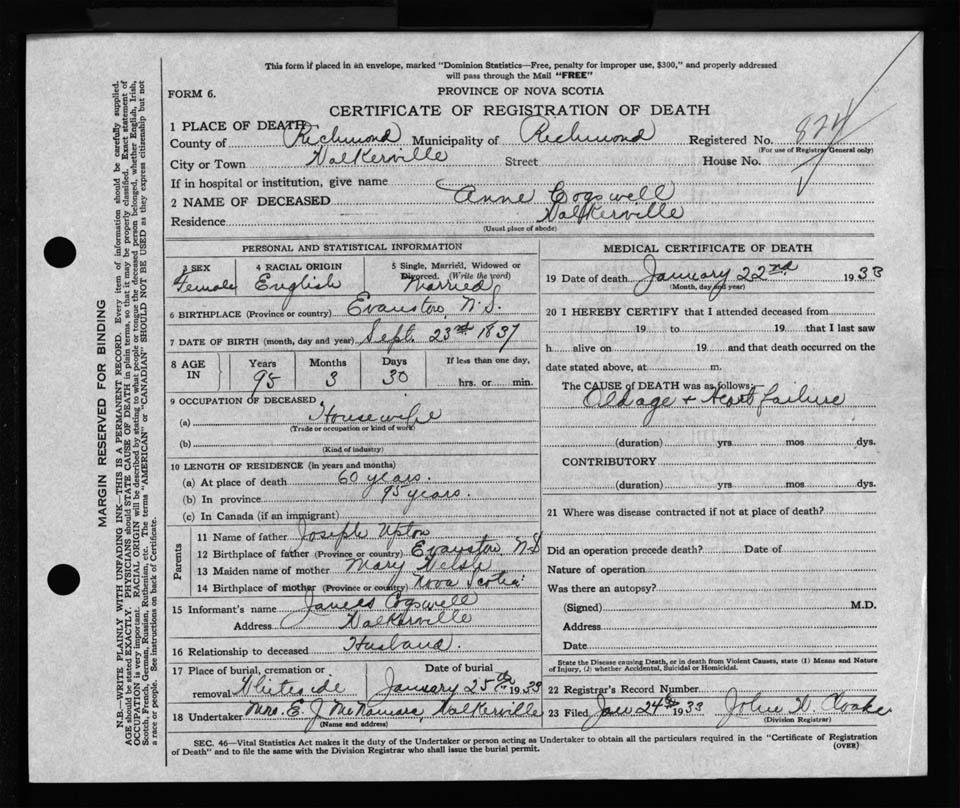 This form if placed in an envelope, marked "Dominion Statistics—Free, penalty for improper use, $300," and properly addressed
will pass through the Mail "FREE"
FORM 6.
PROVINCE OF NOVA SCOTIA
CERTIFICATE OF REGISTRATION OF DEATH
1 PLACE OF DEATH
County of Richmond Municipality of Richmond Registered No. 824
(For use of Registrar General only)
City or Town Walkerville Street House No.
If in hospital or institution, give name
2 NAME OF DECEASED Anne Cogswell
Residence Walkerville
(Usual place of abode)
PERSONAL AND STATISTICAL INFORMATION
3 SEX 4 RACIAL ORIGIN 5 Single, Married, Widowed or
Divorced. (Write the word)
Female English Married
6 BIRTHPLACE (Province or country) Evanston, N.S.
7 DATE OF BIRTH (month, day and year) Sept. 23rd 1837
8 AGE IN Years Months Days If less than one day,
95 3 30 hrs. or min.
9 OCCUPATION OF DECEASED
(a) Housewife
(Trade or occupation or kind of work)
(b)
(Kind of industry)
10 LENGTH OF RESIDENCE (in years and months)
(a) At place of death 60 years.
(b) In province 95 years.
(c) In Canada (if an immigrant)
Parents
11 Name of father Joseph Upton
12 Birthplace of father (Province or country) Evanston N.S
13 Maiden name of mother Mary Welsh
14 Birthplace of mother (Province or country) Nova Scotia
15 Informant's name James Cogswell
Address Walkerville
16 Relationship to deceased Husband.
17 Place of burial, cremation or Date of burial
removal Whiteside January 25th 1933
18 Undertaker Mrs. E. J. McNamara, Walkerville
(Name and address)
MEDICAL CERTIFICATE OF DEATH
19 Date of death January 22nd 1933
(Month, day and year)
20 I HEREBY CERTIFY that I attended deceased from
19 to 19 that I last saw
h alive on 19 and that death occurred on the
date stated above, at m.
The CAUSE of DEATH was as follows:
Old age + Heart failure
(duration) yrs. mos. dys.
CONTRIBUTORY
(duration) yrs. mos. dys.
21 Where was disease contracted if not at place of death?
Did an operation precede death? Date of
Nature of operation
Was there an autopsy?
(Signed) M.D.
Address
Date
State the Disease causing Death, or in death from Violent Causes, state (1) Means and Nature
of Injury, (2) whether Accidental, Suicidal or Homicidal.
22 Registrar's Record Number
23 Filed Jan 24th 1933 John W.
(Division Registrar)
SEC. 46—Vital Statistics Act makes it the duty of the Undertaker or person acting as Undertaker to obtain all the particulars required in the "Certificate of Registration
of Death" and to file the same with the Division Registrar who shall issue the burial permit.
(OVER)
MARGIN RESERVED FOR BINDING
N.B.—WRITE PLAINLY WITH UNFADING INK—THIS IS A PERMANENT RECORD. Every item of information should be carefully supplied.
AGE should be stated EXACTLY. PHYSICIANS should STATE CAUSE OF DEATH in plain terms, so that it may be properly classified. Exact statement of
OCCUPATION is very important. RACIAL ORIGIN will be described by stating to what people or tongue the deceased person belonged, whether English, Irish,
Scotch, French, German, Russian, Ruthenian, etc. The terms "AMERICAN" or "CANADIAN" SHOULD NOT BE USED as they express citizenship but not
a race or people. See instructions on back of Certificate.